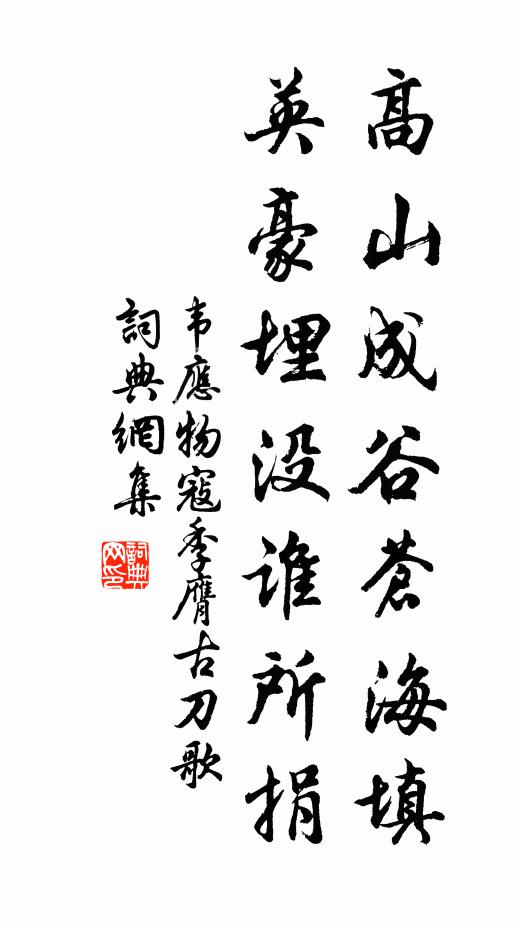 高山成谷蒼海填
英豪埋没誰所捐
韦應物寇季膺古刀歌
詞典網集
詞典网印